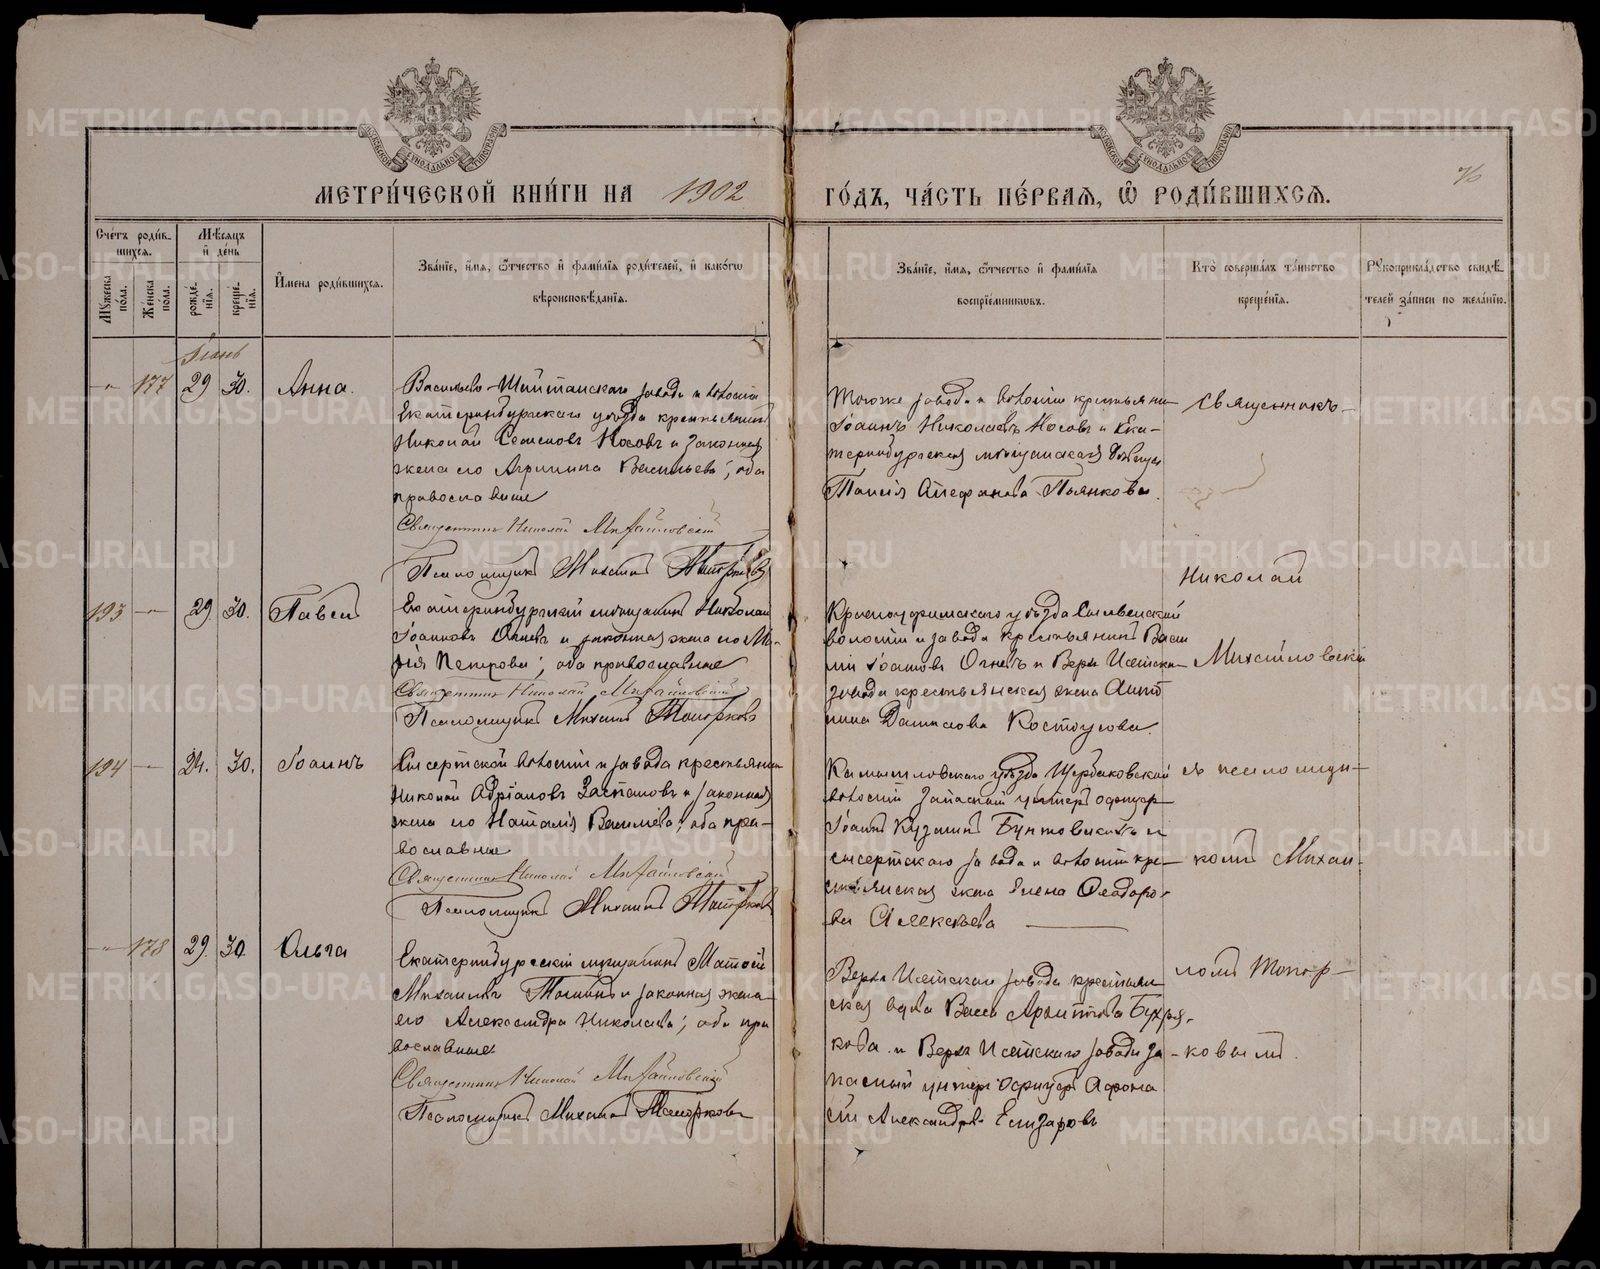 МЕТРИ́ЧЕСКОЙ КНИ́ГИ НА 1902 ГО́ДЪ, ЧА́СТЬ ПЕ́РВАЯ, Ѡ РОДИ́ВШИХСЯ.
76
Сче́тъ роди́в-
шихся.
Му́жеска по́ла.
Же́нска по́ла.
Мѣ́сяцъ
и҆ де́нь
рожде́-
нїя.
креще́-
нїя.
И҆мена роди́вшихся.
Зва́нїе, и҆́мя, ѻ҆́тчество и҆ фами́лїя роди́телей, и҆ како́гѡ
вѣроисповѣ́данїя.
Зва́нїе, и҆́мя, ѻ҆́тчество и҆ фами́лїя
воспрїе́мниковъ.
Кто̀ соверша́лъ та́инство
креще́нїя.
Рꙋкоприкла́дство свидѣ́-
телей за́писи по жела́нїю.
Іюнь
177 29 30. Анна.
Васильево-Шайтанскаго завода и волости
Екатеринбургскаго уѣзда крестьянинъ
Николай Семеновъ Носовъ и законная
жена его Агрипина Васильева; оба
православные
Священникъ Николай Михайловскій
Псаломщикъ Михаилъ Топорковъ
Тогоже завода и волости крестьянинъ
Іоаннъ Николаевъ Носовъ и Ека-
теринбургская мѣщанская
Таисія Стефанова Пьянкова.
Священникъ-
Николай
Михайловскій
съ псаломщи-
комъ Михаи-
ломъ Топор-
ковымъ.
193 29. 30. Павелъ
Екатеринбургскій мѣщанинъ Николай
Іоанновъ Огневъ и законная жена его Ма-
рія Петрова; оба православные
Священникъ Николай Михайловскій
Псаломщикъ Михаилъ Топорковъ
Красноуфимскаго уѣзда Сылвенской
волости и завода крестьянинъ Васи
лій Іоанновъ Огневъ и Верхъ Исетска-
завода крестьянская жена Анто
нина Данилова Костоусова.
194 24. 30. Іоаннъ
Сысертской волости и завода крестьянинъ
Николай Адріановъ и законная
жена его Наталія Васильева; оба пра-
вославные
Священникъ Николай Михайловскій
Псаломщикъ Михаилъ Топорковъ
Камышловскаго уѣзда Щербаковской
волости запасный унтеръ офицеръ
Іоаннъ Кузминъ и
Сысертскаго завода и волости кре-
стьянская жена Елена Ѳеодоро-
ва Алексѣева
178 29. 30. Ольга
Екатеринбургскій мѣщанинъ Матѳей
Михаиловъ и законная жена-
его Александра Николаева; оба пра
вославные.
Священникъ Николай Михайловскій
Псаломщикъ Михаилъ Топорковъ
Верхъ Исетскаго завода крестьян-
ская вдова Васса
и Верхъ Исетскаго завода за-
пасный унтеръ офицеръ Афона
сій Александровъ Елизаровъ
METRIKI.GASO-URAL.RU